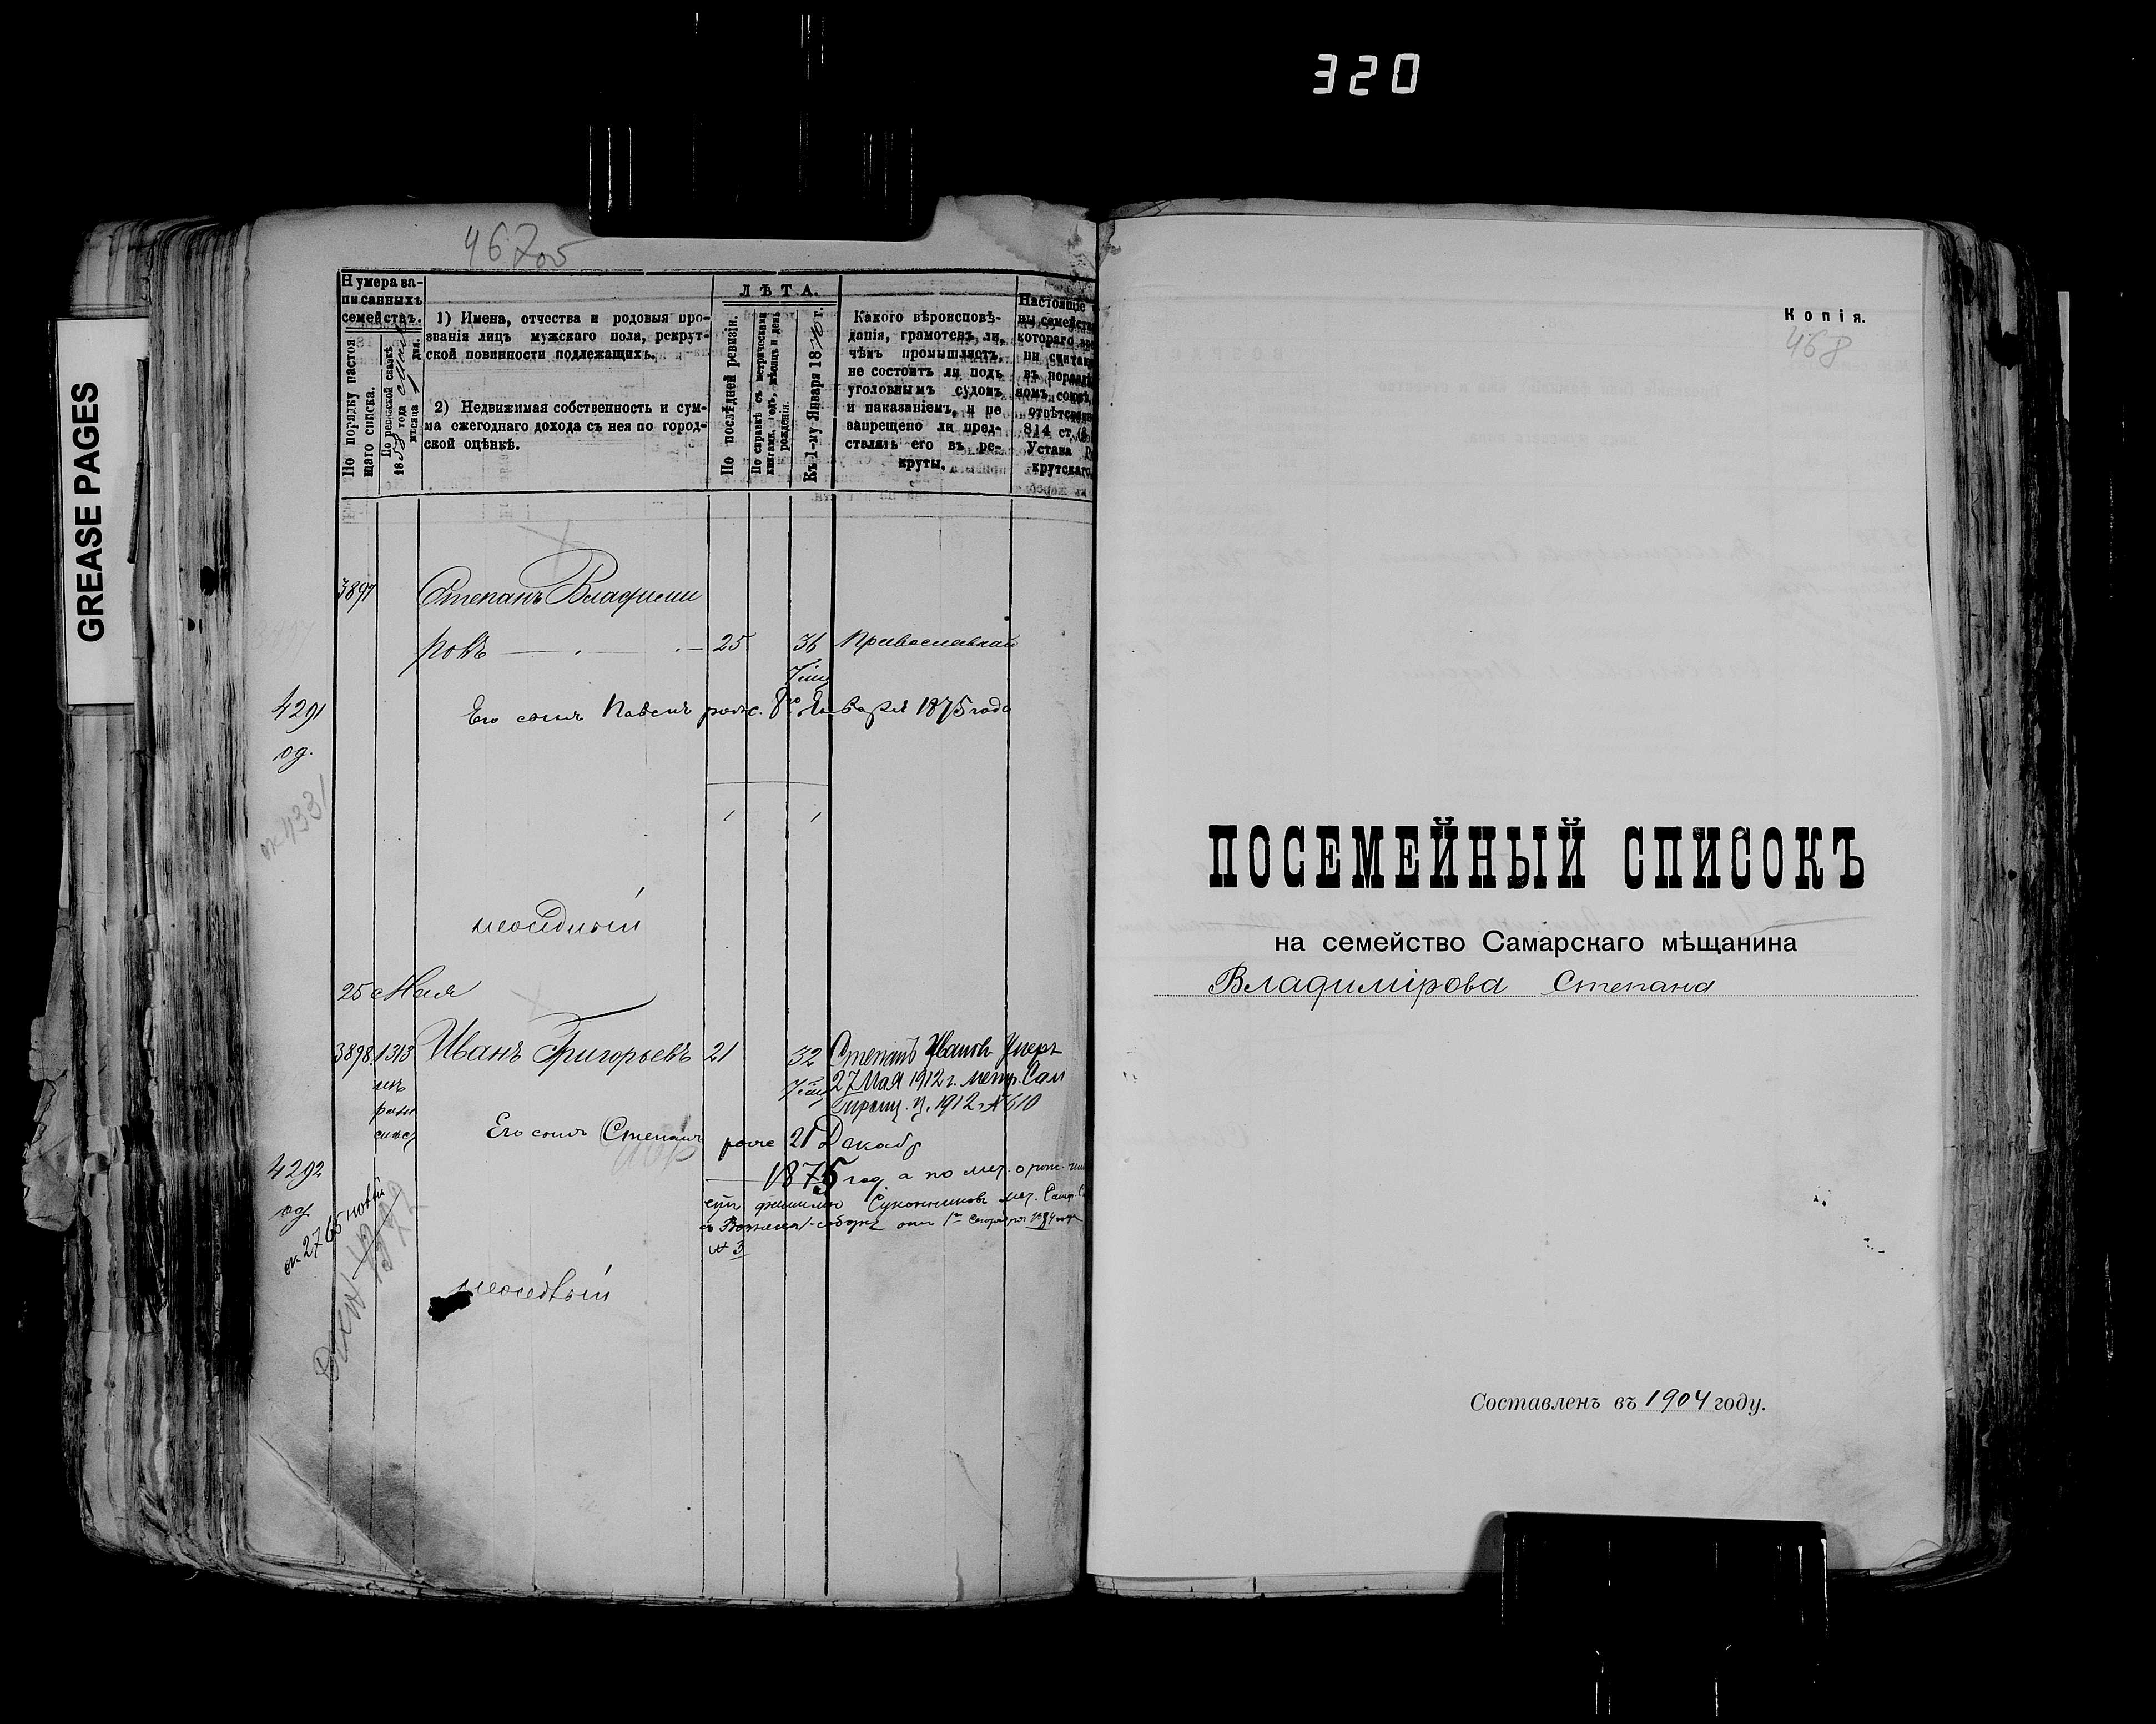 320
GREASE PAGES
467об
Нумера за-
писанныхъ
семействъ.
По порядку настоя-
щаго списка.
По ревизской сказкѣ
1858 года
мѣсяца 1 дня.
1) Имена, отчества и родовыя про-
званія лицъ мужскаго пола, рекрут-
ской повинности подлежащихъ.
2) Недвижимая собственность и сум-
ма ежегоднаго дохода съ нея по город-
ской оцѣнкѣ.
ЛѢТА.
По послѣдней ревизіи.
По справкѣ съ метрическими
книгами, годъ, мѣсяцъ и день
рожденія.
Къ 1-му Января 1870 г.
Какого вѣроисповѣ-
данія, грамотенъ ли,
чѣмъ промышляетъ,
не состоитъ ли подъ
уголовнымъ судомъ
и наказаніемъ, и не
запрещено ли пред-
ставлять его въ ре-
круты.
Настоящіе
ны семейства
котораго
ли считает
въ нераздѣ
номъ
отвѣтствен
814 ст.
Устава Ре
крутскаго.
3897 Степанъ Владими
ровъ 25 36 Православнай
4291 Его сынъ Павелъ родис. 8го Января 1875 года
од.
ок 4331
25 Мая
3898 1313 Иванъ Григорьевъ 21 32 Степанъ Иванов Умеръ
27 Мая 1912 г. метр. Сам
1912 г. № 610
Его сынъ Степанъ родис 21 Декабр
4292 1875 год а по мет. о рож.
од.
ок 2765 новый
фамилію Суконниковъ мет. Самар.
№ 3
Копія.
468
ПОСЕМЕЙНЫЙ СПИСОКЪ
на семейство Самарскаго мѣщанина
Владимірова Степана
Составленъ въ 1904 году.